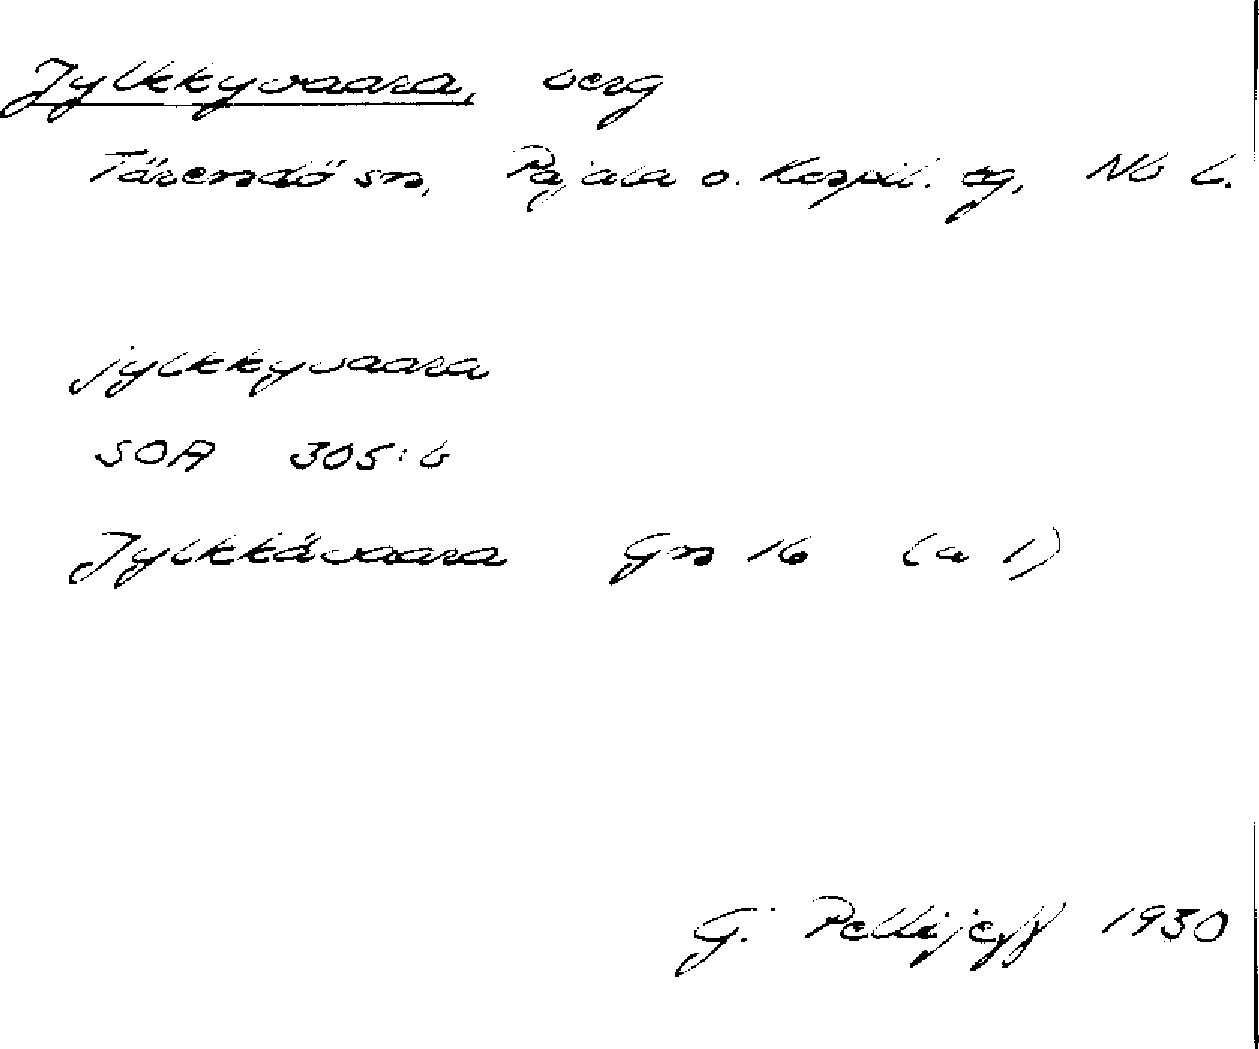 Jylkkyvaara, berg
Tärendö sn, Pajala o. Korpil. tg, Nb l.
jylkkyvaara
SOA 305:6
Jylkkävaara Gn 16 (a 1)
G. Pellijeff 1930